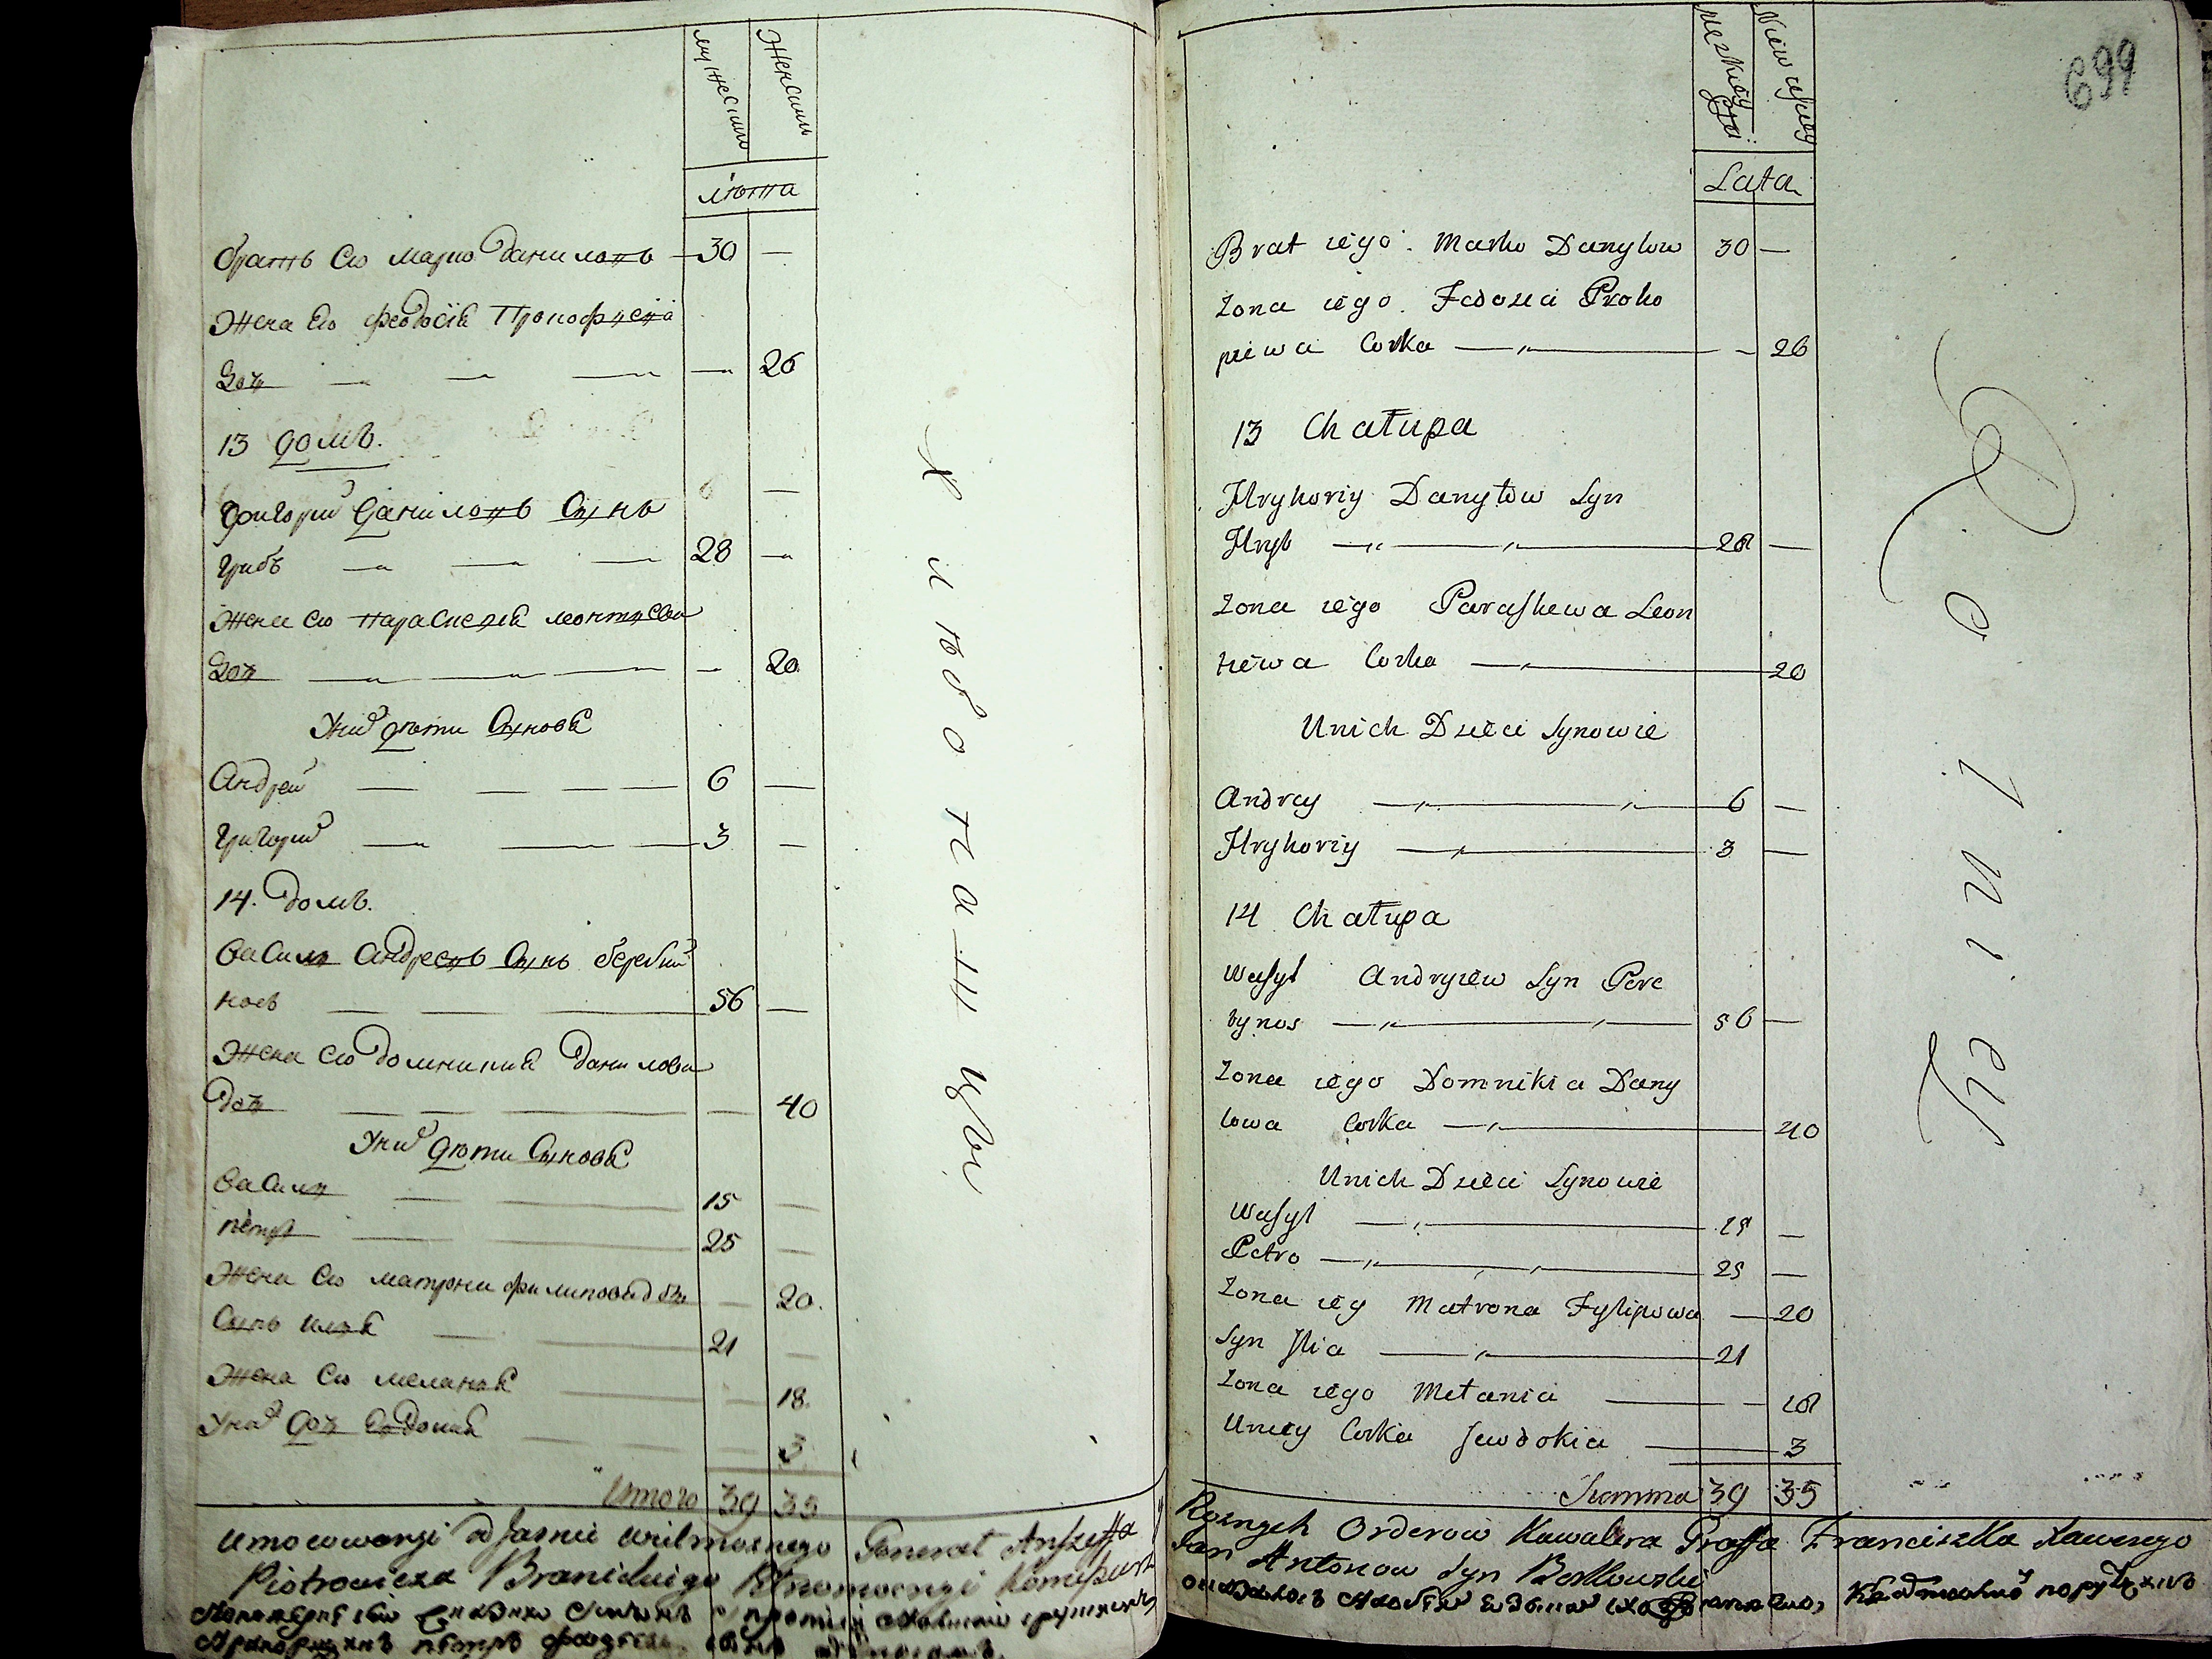 мужескаго
женскаго
лѣта
братъ его марко даниловъ 30 —
жена его феодосіа Прокофиева
доч — — — — 26
13 домъ.
григорий даниловъ сынъ
грибъ — — — 28 —
жена его параскевіа леонтиева
доч — — — — 20
У них дѣти сыновя
Андрей — — — 6 —
григорий — — — 3 —
14. домъ.
василь андреевъ сынъ беребий
носъ — — — 56 —
жена его домникиа данилова
доч — — — — 40
У них дѣти сыновя
василь — — 15 —
петръ — — 25 —
жена его матрона филипова дочь — 20.
сынъ илья — 21 —
жена его меланія — — 18.
У них доч евдокия — — 3
Итого 39 35
хлѣбопашцы
Umocowanyi od Jasnie wielmoznego Generał Anszeffa
Piotrowicza Branickiego Pełnomocnyi Komisarz
męzkiey
płci
Niewiesciey
699
Lata
Brat iego Marko Danyłow 30 —
Zona iego Fedosia Proko
piewa Corka — „ — — 26
13 Chałupa
Hryhoriy Danyłow Syn
Hryb — „ — „ — 28 —
Zona iego Paraskewa Leon
tiewa Corka — „ — 20
Unich Dzieci Synowie
Andrey — „ — „ — 6 —
Hryhoriy — „ — 3 —
14 Chałupa
Wasyl Andryiew Syn Pere
bynos — „ — „ — 56 —
Zona iego Domnikia Dany
lowa Corka — „ — 40
Unich Dzieci Synowie
Wasyl — „ — 15 —
Petro — „ — „ — „ — 25 —
Zona ieg Matrona Fylipowa — 20
Syn Ilia — „ — 21
Zona iego Mełania — — 18
Uniey Corka Jewdokia — 3
Summa 39 35
Rolnicy
Roznych Orderow Kawalera Graffa Franciszka Xawerego
Jan Antonow Syn Borkowski